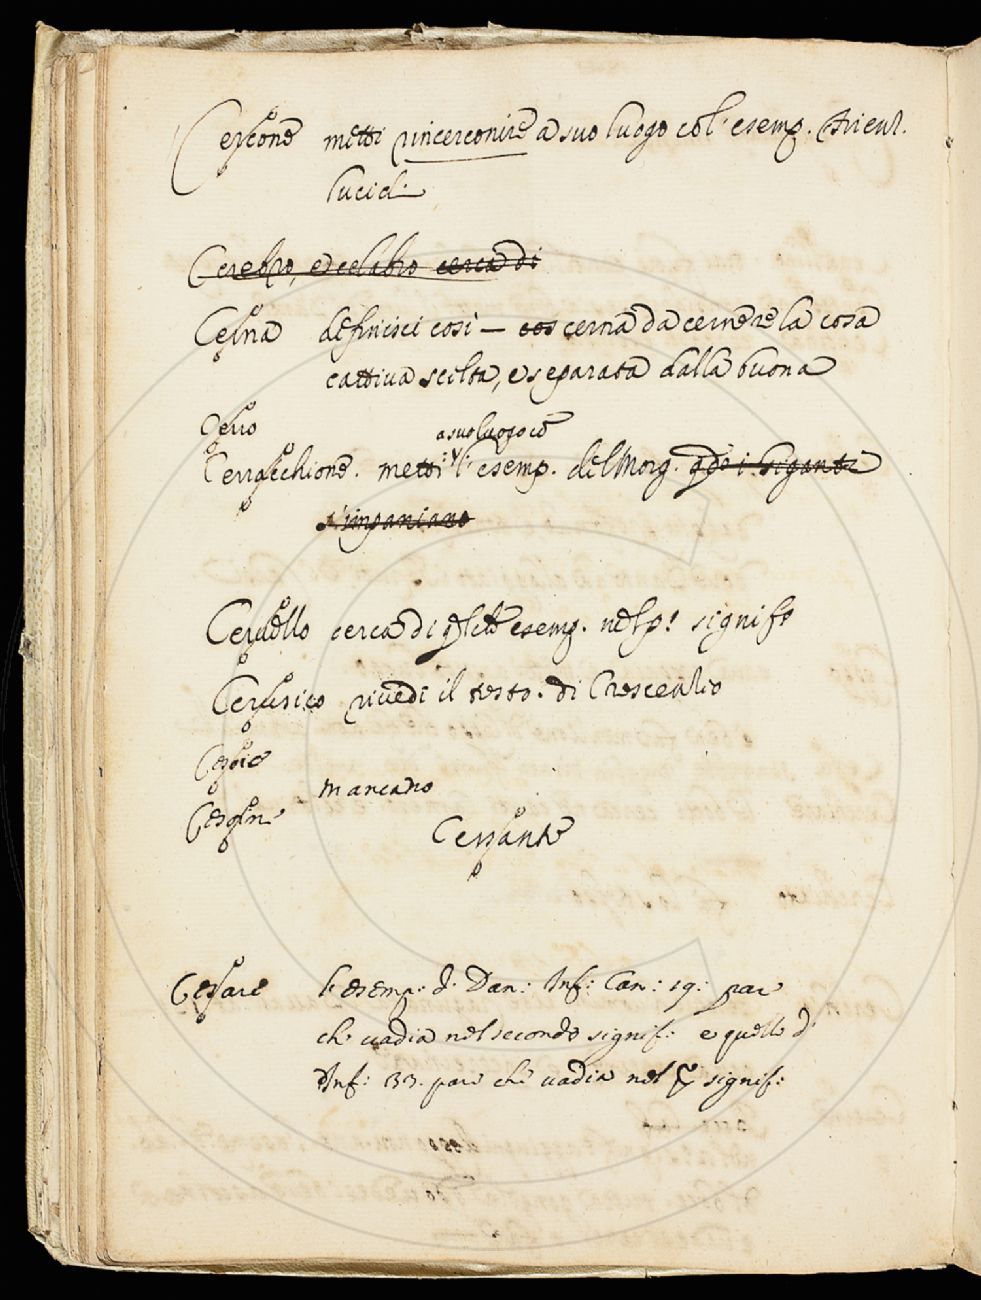 Cercone metti rincerconire a suo luogo col' esemp.
lucid.
Cerebro, e celabro cerca di
Cerna definisci cosi — cos cerna da cernere la cosa
cattiva scelta, e separata dalla buona
Cerro
a suo luogo
Cerracchione. metti l'esemp. del Morg. i giganti
s'impaniano
Cervello cerca di esemp. nel signif
Cerusico rivedi il testo. di Crescenzio
mancano
Cessante
Cessare l'esemp: d. Dan: Inf: Can: 19: par
che vadia nel secondo signif: e quello d'
Inf: 33. pare che vadia nel signif: